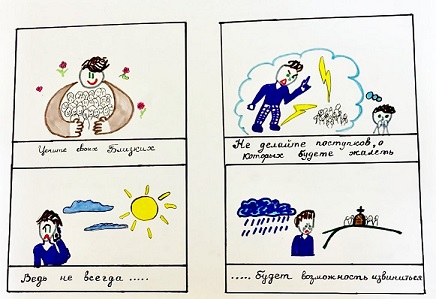 Цените своих Близких
Не делайте поступков, о
которых будете жалеть
Ведь не всегда .....
..... будет возможность извиниться